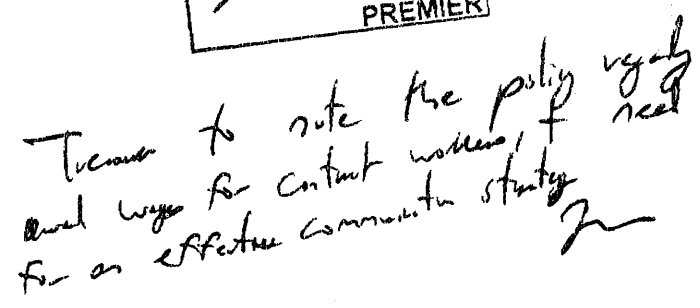 PREMIER
Treasurer to note the policy regarding
award wages for contract workers, + need
for an effective communication strategy